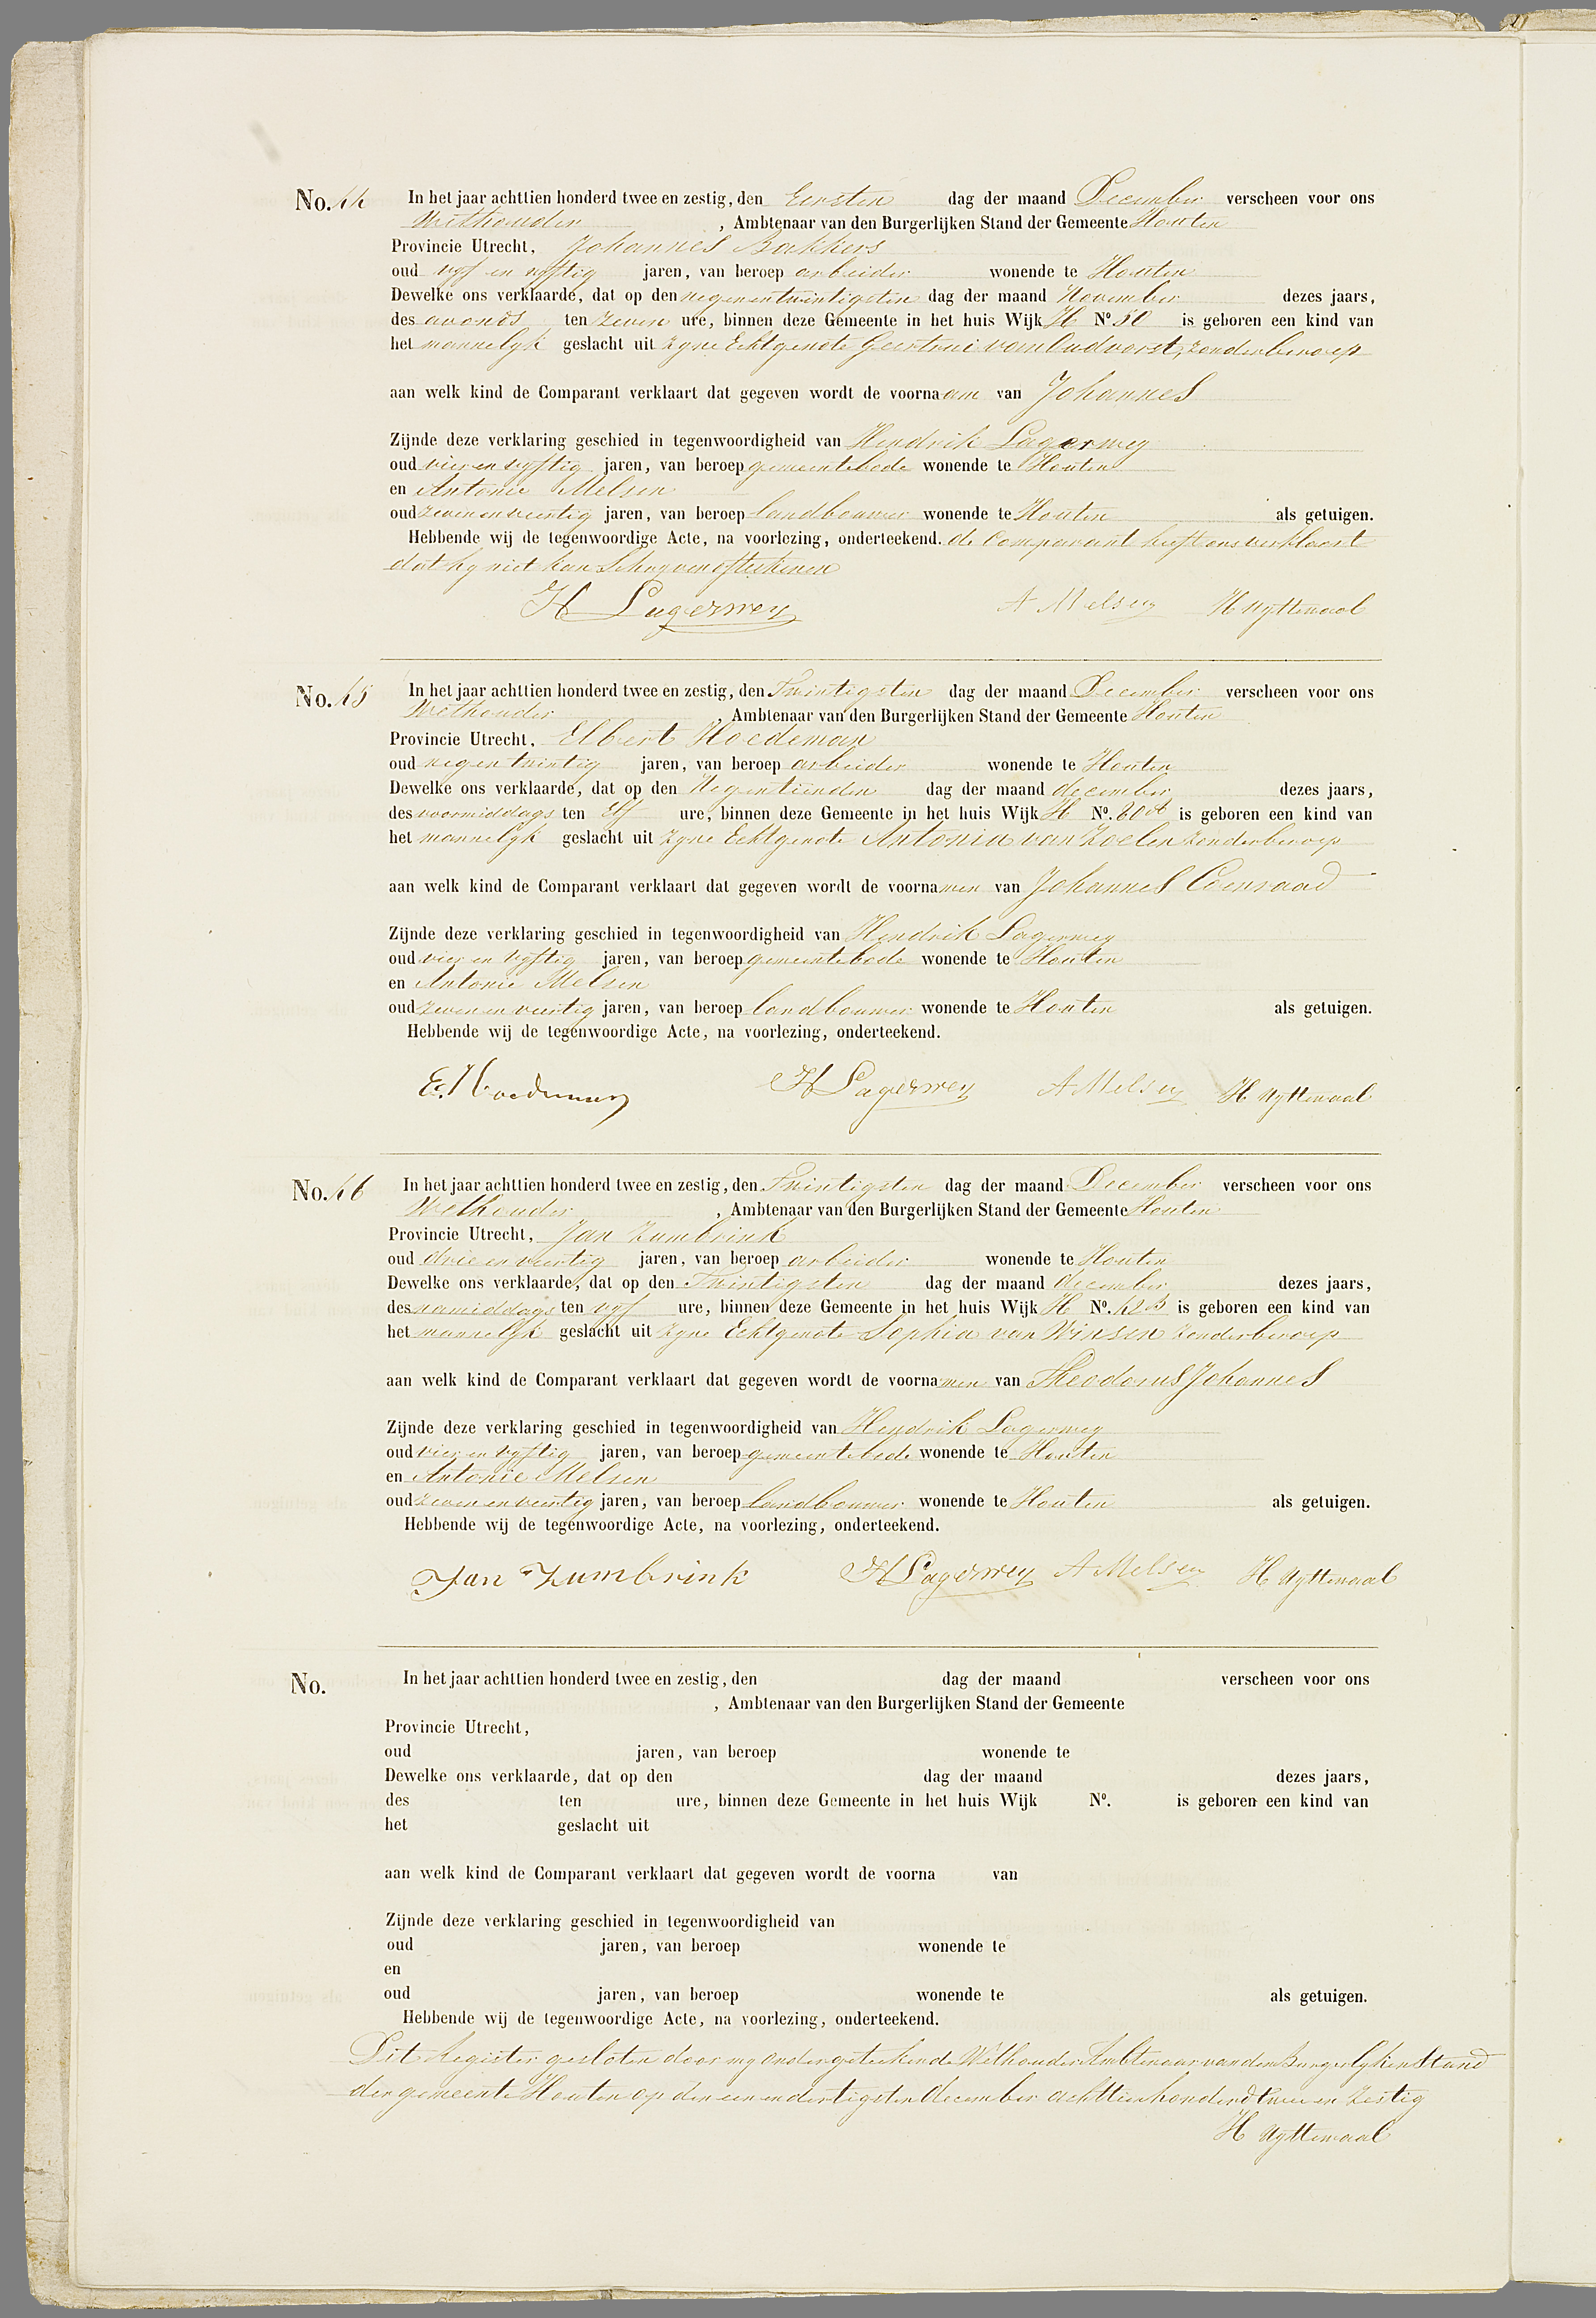 No. 44 In het jaar achttien honderd twee en zestig, den Eersten dag der maand December verscheen voor ons
Wethouder , Ambtenaar van den Burgerlijken Stand der Gemeente Houten
Provincie Utrecht, Johannes Bakkers
oud vyf en vyftig jaren, van beroep arbeider wonende te Houten
Dewelke ons verklaarde, dat op den negenentwintigsten dag der maand November dezes jaars,
des avonds ten zeven ure, binnen deze Gemeente in het huis Wijk H No. 50 is geboren een kind van
het mannelyk geslacht uit zyne Echtgenote Geertrui van Oudvorst, zonder beroep
aan welk kind de Comparant verklaart dat gegeven wordt de voornaam van Johannes
Zijnde deze verklaring geschied in tegenwoordigheid van Hendrik Lagerwey
oud vier en vyftig jaren, van beroep gemeentebode wonende te Houten
en Antonie Melsen
oud zeven en veertig jaren, van beroep landbouwer wonende te Houten als getuigen.
Hebbende wij de tegenwoordige Acte, na voorlezing, onderteekend. de Comparant heeft ons verklaart
dat hy niet kan Schryven of teekenen
H Lagerwey A Melsen H Uyttewaal
No. 45 In het jaar achttien honderd twee en zestig, den Twintigsten dag der maand December verscheen voor ons
Wethouder , Ambtenaar van den Burgerlijken Stand der Gemeente Houten
Provincie Utrecht, Elbert Hoedeman
oud negen twintig jaren, van beroep arbeider wonende te Houten
Dewelke ons verklaarde, dat op den Negentienden dag der maand december dezes jaars,
des voormiddags ten Elf ure, binnen deze Gemeente in het huis Wijk H No. is geboren een kind van
het mannelyk geslacht uit zyne Echtgenote Antonia van Zoelen zonder beroep
aan welk kind de Comparant verklaart dat gegeven wordt de voornamen van Johannes Coenraad
Zijnde deze verklaring geschied in tegenwoordigheid van Hendrik Lagerwey
oud vier en vyftig jaren, van beroep gemeentebode wonende te Houten
en Antonie Melsen
oud zeven en veertig jaren, van beroep landbouwer wonende te Houten als getuigen.
Hebbende wij de tegenwoordige Acte, na voorlezing, onderteekend.
E. Hoedeman H Lagerwey A Melsen H Uyttewaal
No. 46 In het jaar achttien honderd twee en zestig, den Twintigsten dag der maand December verscheen voor ons
Wethouder , Ambtenaar van den Burgerlijken Stand der Gemeente Houten
Provincie Utrecht, Jan Zumbrink
oud drie en veertig jaren, van beroep arbeider wonende te Houten
Dewelke ons verklaarde, dat op den Twintigsten dag der maand december dezes jaars,
des namiddags ten vyf ure, binnen deze Gemeente in het huis Wijk H No. 42B is geboren een kind van
het mannelyk geslacht uit zyne Echtgenote Sophia van Winsen zonder beroep
aan welk kind de Comparant verklaart dat gegeven wordt de voornamen van Theodorus Johannes
Zijnde deze verklaring geschied in tegenwoordigheid van Hendrik Lagerwey
oud vier en vyftig jaren, van beroep gemeentebode wonende te Houten
en Antonie Melsen
oud zeven en veertig jaren, van beroep landbouwer wonende te Houten als getuigen.
Hebbende wij de tegenwoordige Acte, na voorlezing, onderteekend.
Jan Zumbrink H Lagerwey A Melsen H Uyttewaal
No. In het jaar achttien honderd twee en zestig, den dag der maand verscheen voor ons
, Ambtenaar van den Burgerlijken Stand der Gemeente
Provincie Utrecht,
oud jaren, van beroep wonende te
Dewelke ons verklaarde, dat op den dag der maand dezes jaars,
des ten ure, binnen deze Gemeente in het huis Wijk No. is geboren een kind van
het geslacht uit
aan welk kind de Comparant verklaart dat gegeven wordt de voorna van
Zijnde deze verklaring geschied in tegenwoordigheid van
oud jaren, van beroep wonende te
en
oud jaren, van beroep wonende te als getuigen.
Hebbende wij de tegenwoordige Acte, na voorlezing, onderteekend.
Dit Register gesloten door my ondergeteekende Wethouder Ambtenaar van den Burgerlyken Stand
der gemeente Houten op den een en dertigsten December achttienhonderd twee en zestig
H Uyttewaal